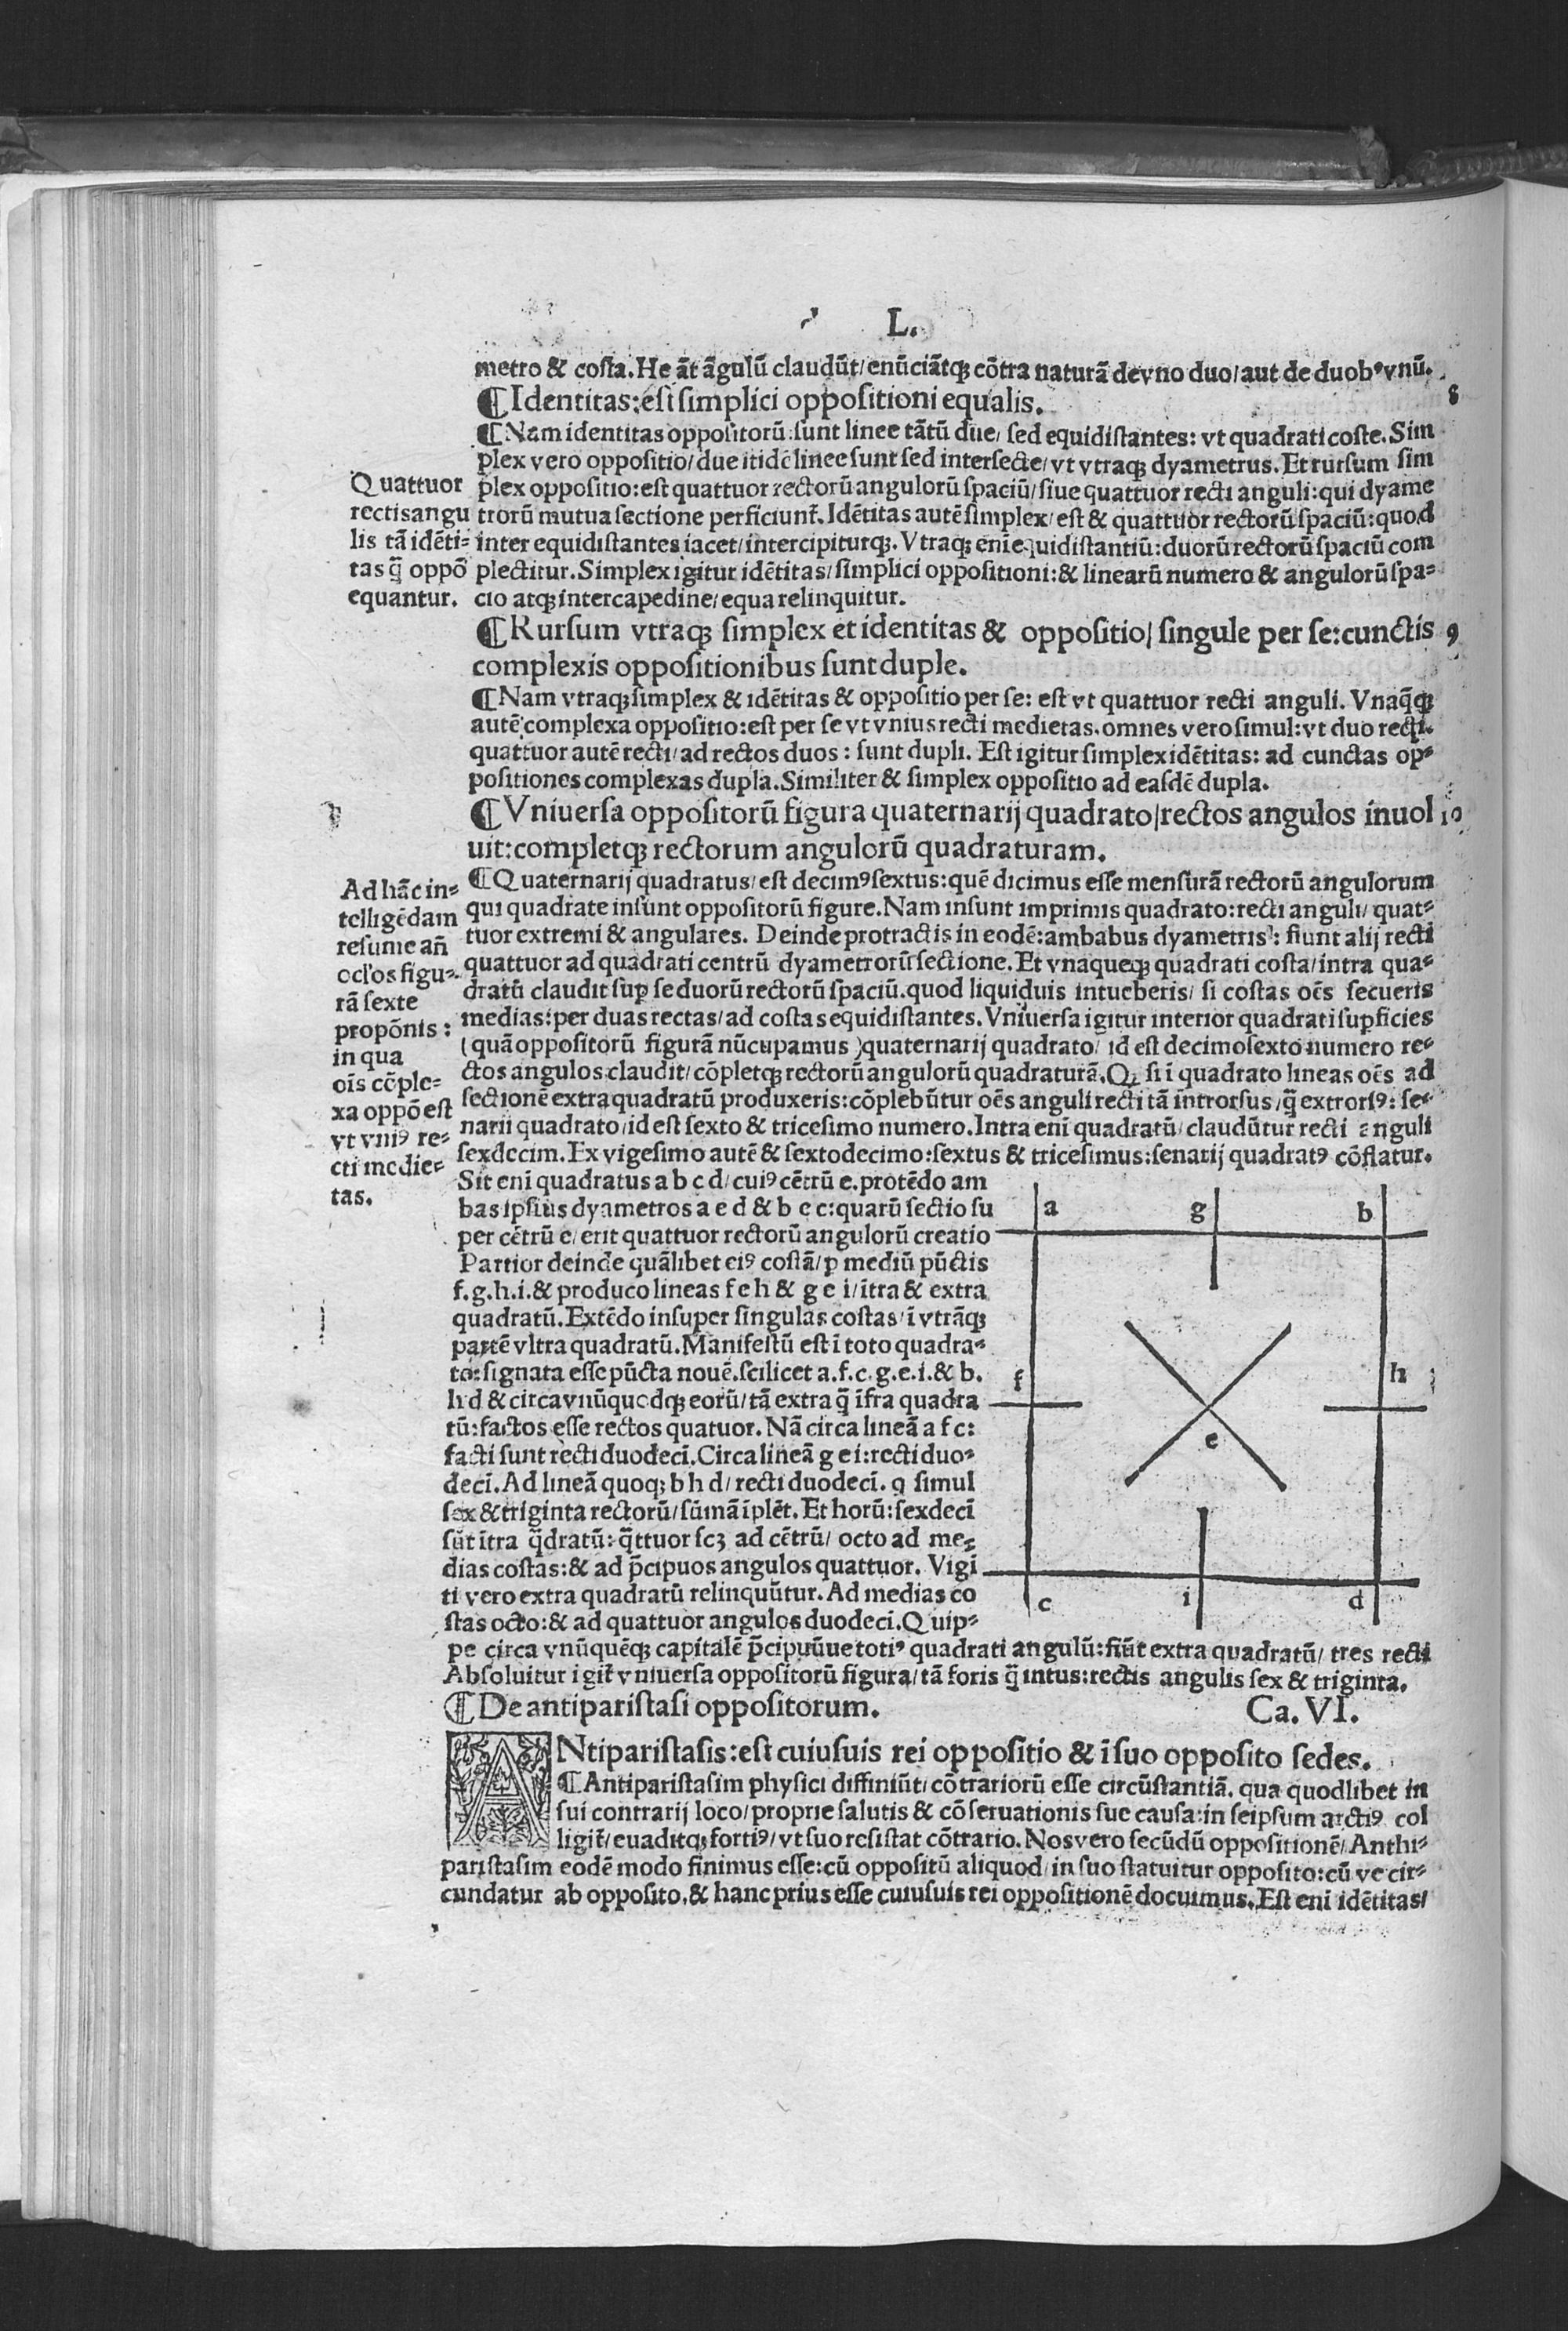 L.
metro & costa. He āt āgulū claudūt/ enūciātqꝫ cōtra naturā de vno duo/ aut de duobꝰ vnū.
¶Identitas: est simplici oppositioni equalis. 8
¶Nam identitas oppositorū: sunt linee tātū due/ sed equidistantes: vt quadrati coste. Sim
plex vero oppositio/ due itidē linee sunt sed intersecte/ vt vtraqꝫ dyametrus. Et rursum sim
plex oppositio: est quattuor rectorū angulorū spaciū/ siue quattuor recti anguli: qui dyame
trorū mutua sectione perficiunt᷑. Idētitas autē simplex/ est & quattuor rectorū spaciū: quod
inter equidistantes iacet/ intercipiturqꝫ. Vtraqꝫ enī equidistantiū: duorū rectorū spaciū com
plectitur. Simplex igitur idētitas/ simplici oppositioni: & linearū numero & angulorū spa⸗
cio atqꝫ intercapedine/ equa relinquitur.
Quattuor
rectis angu
lis tā idēti⸗
tas q̄ oppō
equantur.
¶Rursum vtraqꝫ simplex et identitas & oppositio/ singule per se: cunctis 9
complexis oppositionibus sunt duple.
¶Nam vtraqꝫ simplex & idētitas & oppositio per se: est vt quattuor recti anguli. Vnaq̄qꝫ
autē complexa oppositio: est per se vt vnius recti medietas. omnes vero simul: vt duo recti.
quattuor autē recti/ ad rectos duos: sunt dupli. Est igitur simplex idētitas: ad cunctas op⸗
positiones complexas dupla. Similiter & simplex oppositio ad easdē dupla.
¶Vniuersa oppositorū figura quaternarij quadrato/ rectos angulos inuol 10
uit: completqꝫ rectorum angulorū quadraturam.
¶Quaternarij quadratus/ est decimꝰ sextus: quē dicimus esse mensurā rectorū angulorum
qui quadrate insunt oppositorū figure. Nam insunt imprimis quadrato: recti anguli/ quat⸗
tuor extremi & angulares. Deinde protractis in eodē: ambabus dyametris: fiunt alij recti
quattuor ad quadrati centrū dyametrorū sectione. Et vnaqueqꝫ quadrati costa/ intra qua⸗
dratū claudit sup̱ se duorū rectorū spaciū. quod liquiduis intueberis/ si costas oēs secueris
medias: per duas rectas/ ad costas equidistantes. Vniuersa igitur interior quadrati sup̱ficies
(quā oppositorū figurā nūcupamus) quaternarij quadrato/ id est decimosexto numero re⸗
ctos angulos claudit/ cōpletqꝫ rectorū angulorū quadraturā. Qꝫ si ī quadrato lineas oēs ad
sectionē extra quadratū produxeris: cōplebūtur oēs anguli recti tā introrsus/ q̄ extrorsꝰ: se⸗
narii quadrato/ id est sexto & tricesimo numero. Intra enī quadratū/ claudūtur recti anguli
sexdecim. Ex vigesimo autē & sextodecimo: sextus & tricesimus: senarij quadratꝰ cōflatur.
Ad hāc in⸗
telligēdam
resume añ
oclos figu⸗
rā sexte
propōnis:
in qua
oīs cōple⸗
xa oppō est
vt vniꝰ re⸗
cti medie⸗
tas.
Sit enī quadratus a b c d/ cuiꝰ cētrū e. protēdo am
bas ipsius dyametros a e d & b e c: quarū sectio su
per cētrū e/ erit quattuor rectorū angulorū creatio
Partior deinde quālibet eiꝰ costā/ p̱ mediū pūctis
f. g. h. i. & produco lineas f e h & g e i/ ītra & extra
quadratū. Extēdo insuper singulas costas/ ī vtrāqꝫ
partē vltra quadratū. Manifestū est ī toto quadra⸗
to: signata esse pūcta nouē. scilicet a. f. c. g. e. i. & b.
h d & circa vnūquodqꝫ eorū/ tā extra q̄ īfra quadra
tū: factos esse rectos quatuor. Nā circa lineā a f c:
facti sunt recti duodecī. Circa lineā g e i: recti duo⸗
decī. Ad lineā quoqꝫ b h d/ recti duodecī. q simul
sex & triginta rectorū/ sūmā īplēt. Et horū: sexdecī
sūt ītra q̄dratū: q̄ttuor scꝫ ad cētrū/ octo ad me⸗
dias costas: & ad p̄cipuos angulos quattuor. Vigī
ti vero extra quadratū relinquūtur. Ad medias co
stas octo: & ad quattuor angulos duodecī. Quip⸗
pe circa vnūquēqꝫ capitalē p̄cipuūue totiꝰ quadrati angulū: fiūt extra quadratū/ tres recti
Absoluitur igit᷑ vniuersa oppositorū figura/ tā foris q̄ intus: rectis angulis sex & triginta.
a g b
f h
e
c i d
¶De antiparistasi oppositorum. Ca. VI.
ANtiparistasis: est cuiusuis rei oppositio & ī suo opposito sedes.
¶Antiparistasim physici diffiniūt/ cōtrariorū esse circūstantiā. qua quodlibet in
sui contrarij loco/ proprie salutis & cōseruationis sue causa: in seipsum arctiꝰ col
ligit᷑/ euaditqꝫ fortiꝰ/ vt suo resistat cōtrario. Nos vero secūdū oppositionē/ Anthi⸗
paristasim eodē modo finimus esse: cū oppositū aliquod/ in suo statuitur opposito: cū ve cir⸗
cundatur ab opposito. & hanc prius esse cuiusuis rei oppositionē docuimus. Est enī idētitas/